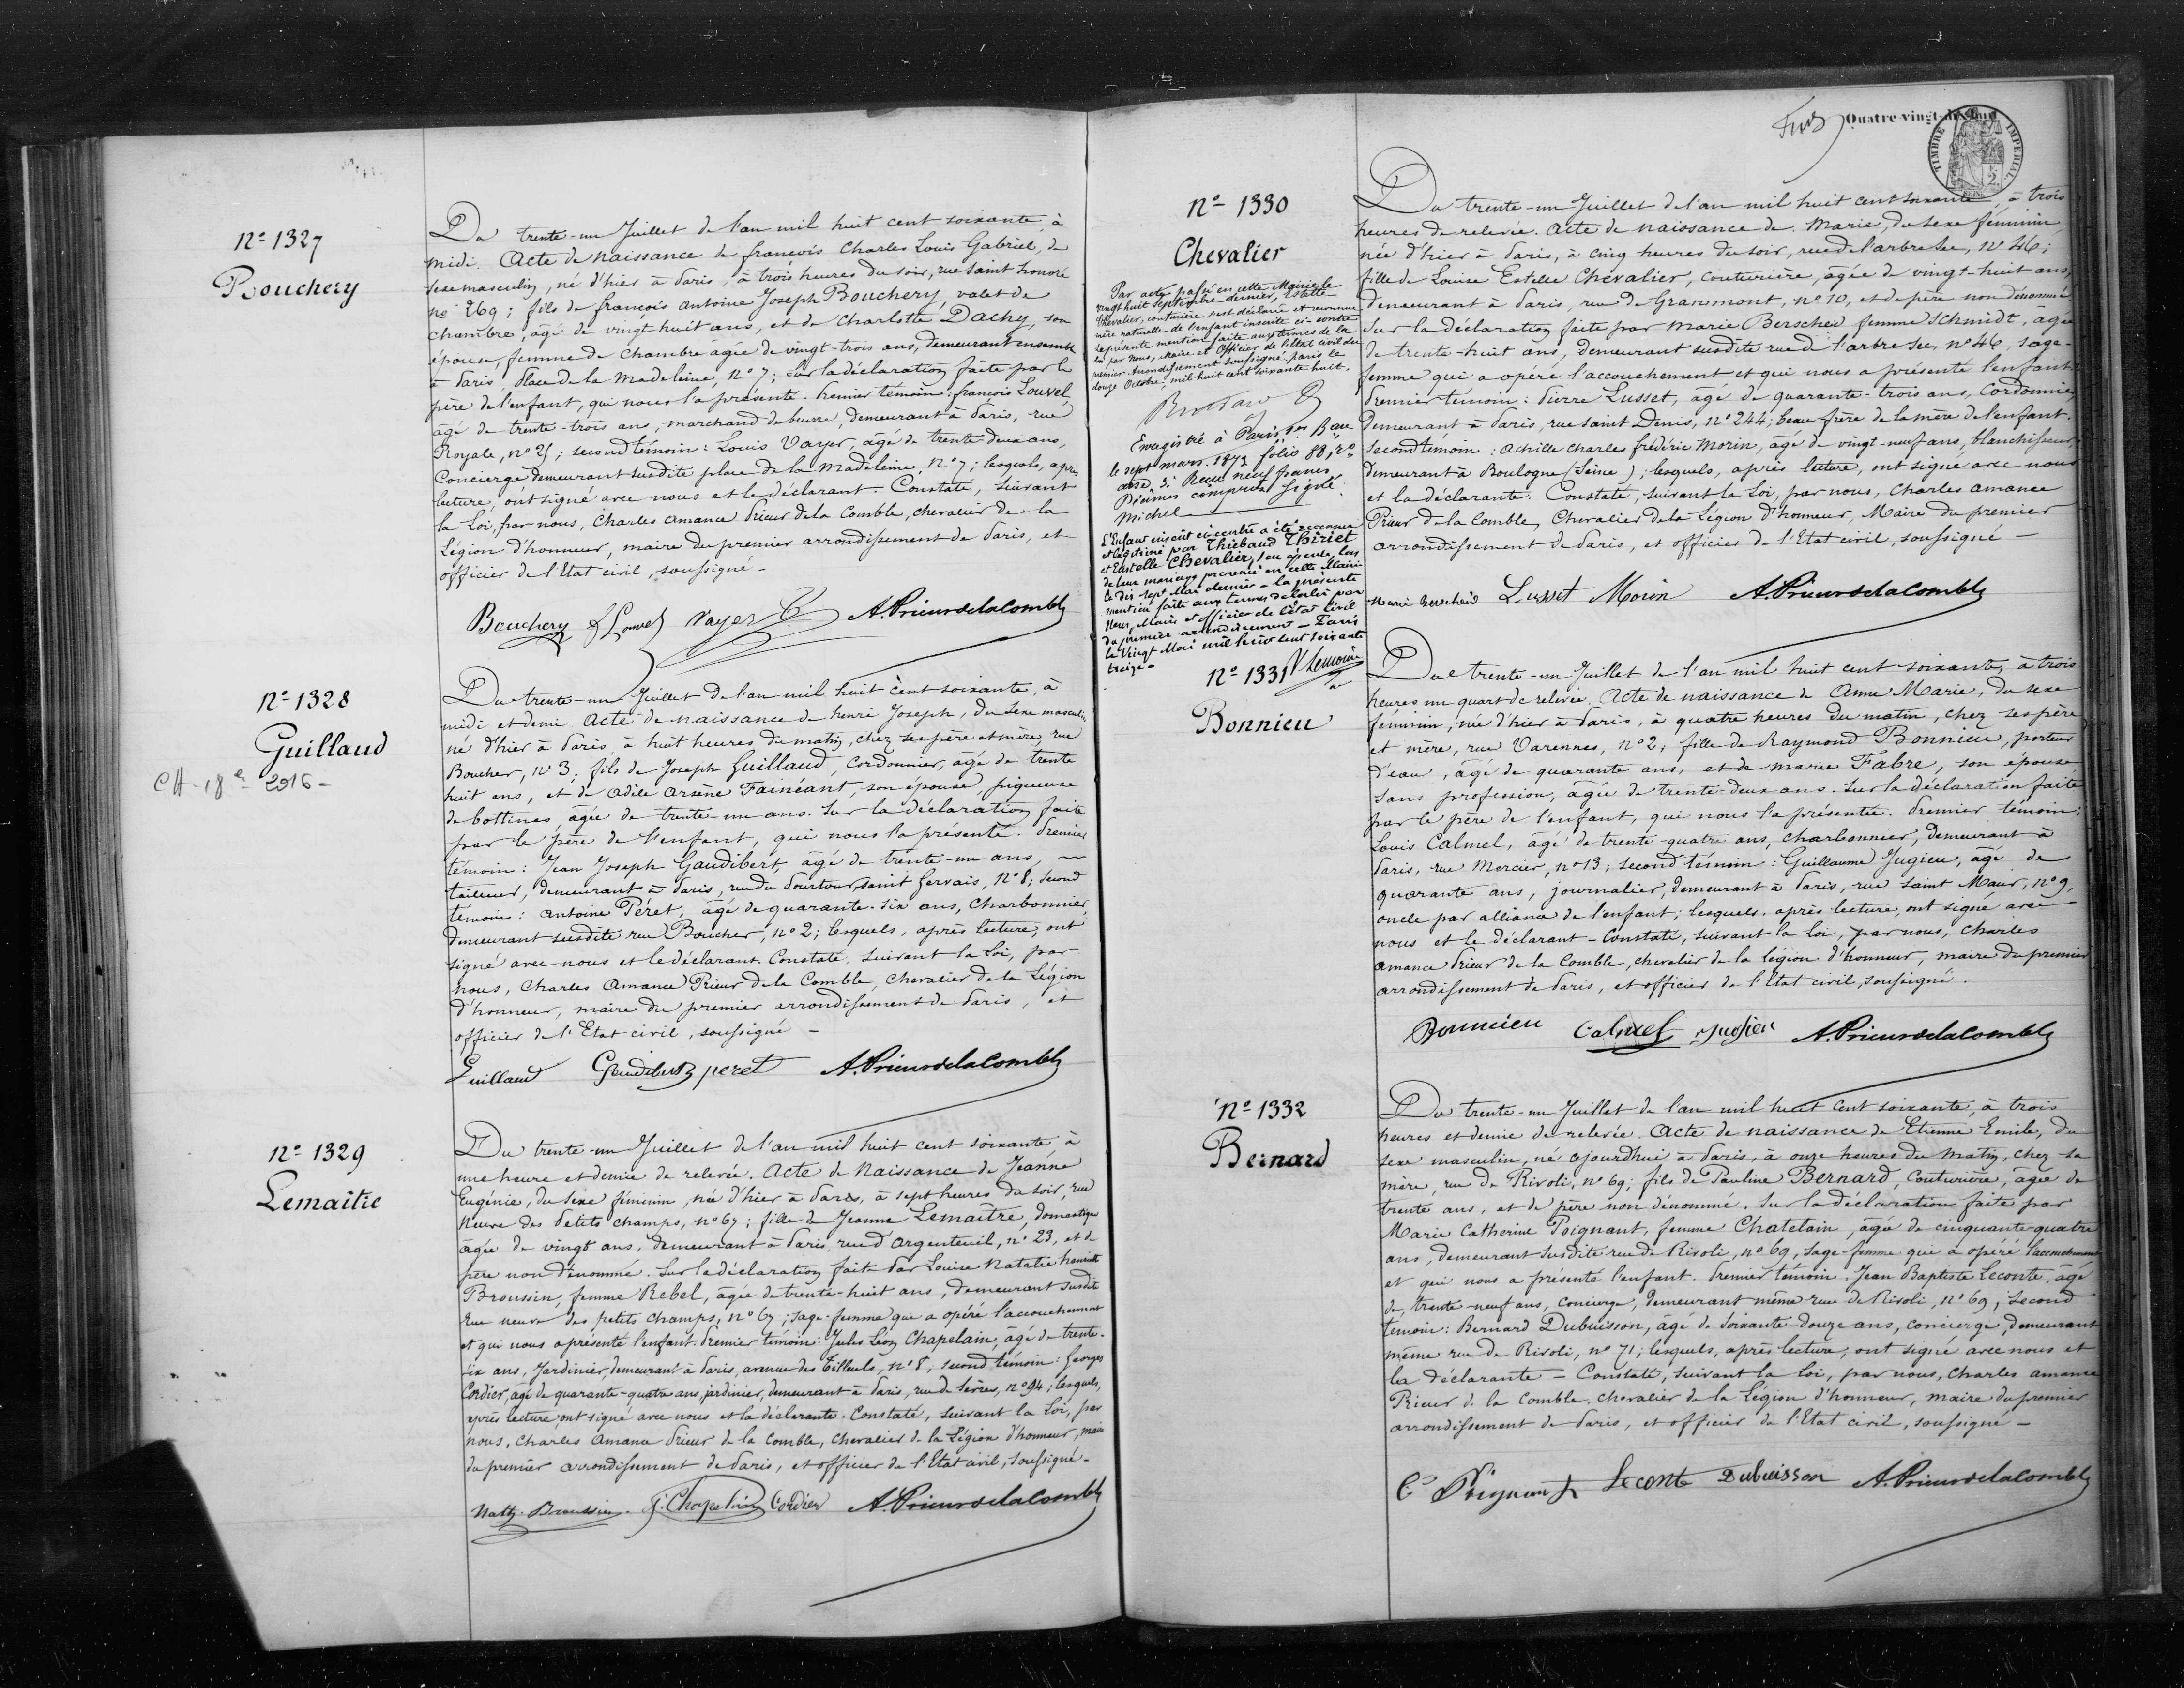 N° 1327
Bouchery
Du trente-un Juillet de l'an mil huit cent soixante, à
midi. Acte de naissance de françois Charles Louis Gabriel, de
sexe masculin, né d'hier à Paris, à trois heures du soir, rue saint honoré
n° 269; fils de françois antoine Joseph Bouchery, valet de
chambre, âgé de vingt huit ans, et de Charlotte Dachy, son
épouse, femme de chambre agée de vingt-trois ans, demeurant ensemble
à Paris, place de la Madeleine, n° 7; sur la déclaration faite par le
père de l'enfant, qui nous l'a présenté. Premier témoin: françois Louvel,
âgé de trente-trois ans, marchand de beurre, demeurant à Paris, rue
Royale, n° 25; second témoin: Louis Vayer, âgé de trente deux ans,
Concierge, demeurant susdite place de la Madeleine, n° 7; lesquels, après
lecture, ont signé avec nous et le déclarant. Constaté, suivant
la Loi, par nous, Charles amance Prieur de la Comble, chevalier de la
Légion d'honneur, maire du premier arrondissement de Paris, et
officier de l'Etat civil, soussigné -
Bouchery f Louvel Vayer A. Prieurdelacomble
N° 1328
Guillaud
CH. 18e 2916 -
Du trente-un Juillet de l'an mil huit cent soixante, à
midi et demi. Acte de naissance de henri Joseph, du sexe masculin
né d'hier à Paris, à huit heures du matin, chez ses père et mère, rue
Boucher, n° 3; fils de Joseph Guillaud, cordonnier, âgé de trente
huit ans, et de Adèle arsène Fainéant, son épouse, piqueuse
de bottines, âgée de trente-un ans. Sur la déclaration faite
par le père de l'enfant, qui nous l'a présenté. Premier
témoin: Jean Joseph Gaudibert, âgé de trente-un ans,
tailleur, demeurant à Paris, rue du Pourtour saint Gervais, n° 8; second
témoin: antoine Péret, âgé de quarante-six ans, Charbonnier,
demeurant susdite rue Boucher, n° 2; lesquels, après lecture, ont
signé avec nous et le déclarant. Constaté, suivant la Loi, par
nous, Charles amance Prieur de la Comble, Chevalier de la Légion
d'honneur, maire du premier arrondissement de Paris, et
officier de l'Etat civil, soussigné -
Guillaud Gaudibert peret A. Prieurdelacomble
N° 1329
Lemaitre
Du trente-un Juillet de l'an mil huit cent soixante, à
une heure et demie de relevée. Acte de Naissance de Jeanne
Eugénie, du sexe féminin, née d'hier à Paris, à sept heures du soir, rue
Neuve des Petits champs, n° 67; fille de Jeanne Lemaitre, domestique
âgée de vingt ans, demeurant à Paris, rue d'argenteuil, n° 23, et de
père non dénommé. Sur la déclaration faite Par Louise Natalie henriette
Broussin, femme Rebel, âgée de trente-huit ans, demeurant susdite
Rue neuve des petits champs, n° 67; sage-femme qui a opéré l'accouchement
et qui nous a présenté l'enfant. Premier témoin: Jules Léon Chapelain, âgé de trente-
six ans, Jardinier, demeurant à Paris, avenue des Tilleuls, n° 8; second témoin: Georges
Cordier, âgé de quarante-quatre ans, jardinier, demeurant à Paris, rue de Sèvres, n° 94; lesquels,
après lecture, ont signé avec nous et la déclarante. Constaté, suivant la Loi, par
nous, Charles amance Prieur de la Comble, chevalier de la Légion d'honneur, maire
du premier arrondissement de Paris, et officier de l'Etat civil, soussigné -
Natly Broussin J. Chapelain Cordier A. Prieurdelacomble
Quatre-vingt-dix-huit
TIMBRE IMPERIAL
N° 1330
Chevalier
Par acte passé en cette Mairie le
vingt huit septembre dernier, Estelle
Chevalier, couturière s'est déclarée et reconnue
mère naturelle de l'enfant inscrite ci-contre
la présente mention faite aux termes de la
loi par nous, maire et officier de l'état civil du
premier Arrondissement soussigné. Paris le
douze Octobre mil huit cent soixante huit.
Enregistré à Paris 1er Bau
le sept mars 1872 folio 88, r°
case 3. Reçu neuf francs
Décimes compris. Signé:
Michel
L'Enfant inscrit ci-contre a été reconnu
et légitimé par Thiébaud Thiriet
et Eustelle Chevalier, son épouse, lors
de leur mariage prononcé en cette Mairie
le dix sept Mai dernier - la présente
mention faite aux termes de la loi par
Nous, Maire et officier de l'état civil
du premier arrondissement - Paris
le Vingt Mai mil huit cent soixante
treize -
Du trente-un Juillet de l'an mil huit cent soixante, à trois
heures de relevée. Acte de naissance de Marie, du sexe féminin,
née d'hier à Paris, à cinq heures du soir, rue de l'arbre sec, n° 46;
fille de Louise Estelle Chevalier, couturière, agée de vingt-huit ans,
demeurant à Paris rue de Grammont, n° 10, et de père non dénommé
Sur la déclaration faite par Marie Berscheid femme Schmidt, agée
de trente-huit ans, demeurant susdite rue de l'arbre sec, n° 46, sage-
femme qui a opéré l'accouchement et qui nous a présenté l'enfant.
Premier témoin: Pierre Lusset, âgé de quarante-trois ans, Cordonnier,
demeurant à Paris, rue Saint Denis, n° 244; beau frère de la mère de l'enfant.
Second témoin: Achille Charles frédéric Morin, âgé de vingt-neuf ans, blanchisseur,
demeurant à Boulogne (Seine); lesquels, après lecture, ont signé avec nous
et la déclarante. Constaté, suivant la Loi, par nous, Charles amance
Prieur de la Comble, Chevalier de la Légion d'honneur, Maire du premier
arrondissement de Paris, et officier de l'Etat civil, soussigné -
Marie Berscheid Lusset Morin A. Prieurdelacomble
N° 1331
Bonnieu
Du trente-un Juillet de l'an mil huit cent soixante, à trois
heures un quart de relevée. Acte de naissance de Anne Marie, du sexe
féminin, née d'hier à Paris, à quatre heures du matin, chez ses père
et mère, rue Varennes, n° 2; fille de Raymond Bonnieu, porteur
d'eau, âgé de quarante ans, et de marie Fabre, son épouse
sans profession, âgée de trente-deux ans. Sur la déclaration faite
par le père de l'enfant, qui nous l'a présentée. Premier témoin:
Louis Calmel, âgé de trente-quatre ans, charbonnier, demeurant à
Paris, rue Mercier, n° 13; second témoin: Guillaume Jugieu, âgé de
quarante ans, journalier, demeurant à Paris, rue saint Maur, n° 9,
oncle par alliance de l'enfant; lesquels, après lecture, ont signé avec
nous et le déclarant - Constaté, suivant la Loi, par nous, Charles
amance Prieur de la Comble, chevalier de la légion d'honneur, maire du premier
arrondissement de Paris, et officier de l'Etat civil, soussigné.
Bonnieu Calmel Jugieu A. Prieurdelacomble
N° 1332
Bernard
Du trente-un Juillet de l'an mil huit cent soixante, à trois
heures et demie de relevée. Acte de naissance de Etienne Emile, du
sexe masculin, né ajourdhui à Paris, à onze heures du matin, chez sa
mère, rue de Rivoli, n° 69; fils de Pauline Bernard, Couturière, âgée de
trente ans, et de père non dénommé. Sur la déclaration faite par
Marie Catherine Poignant, femme Chatelain, agée de cinquante-quatre
ans, demeurant susdite rue de Rivoli, n° 69, sage-femme qui a opéré l'accouchement
et qui nous a présenté l'enfant. Premier témoin: Jean Baptiste Leconte, âgé
de trente-neuf ans, concierge, demeurant même rue de Rivoli, n° 69; second
témoin: Bernard Dubuisson, âgé de soixante-douze ans, concierge, demeurant
même rue de Rivoli, n° 71; lesquels, après lecture, ont signé avec nous et
la déclarante - Constaté, suivant la Loi, par nous, Charles amance
Prieur de la Comble, chevalier de la Légion d'honneur, maire du premier
arrondissement de Paris, et officier de l'Etat civil, soussigné -
Ce Poignant Leconte Dubuisson A. Prieurdelacomble